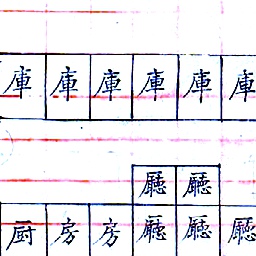 庫庫庫庫庫庫
廳廳
厨房房廳廳廳